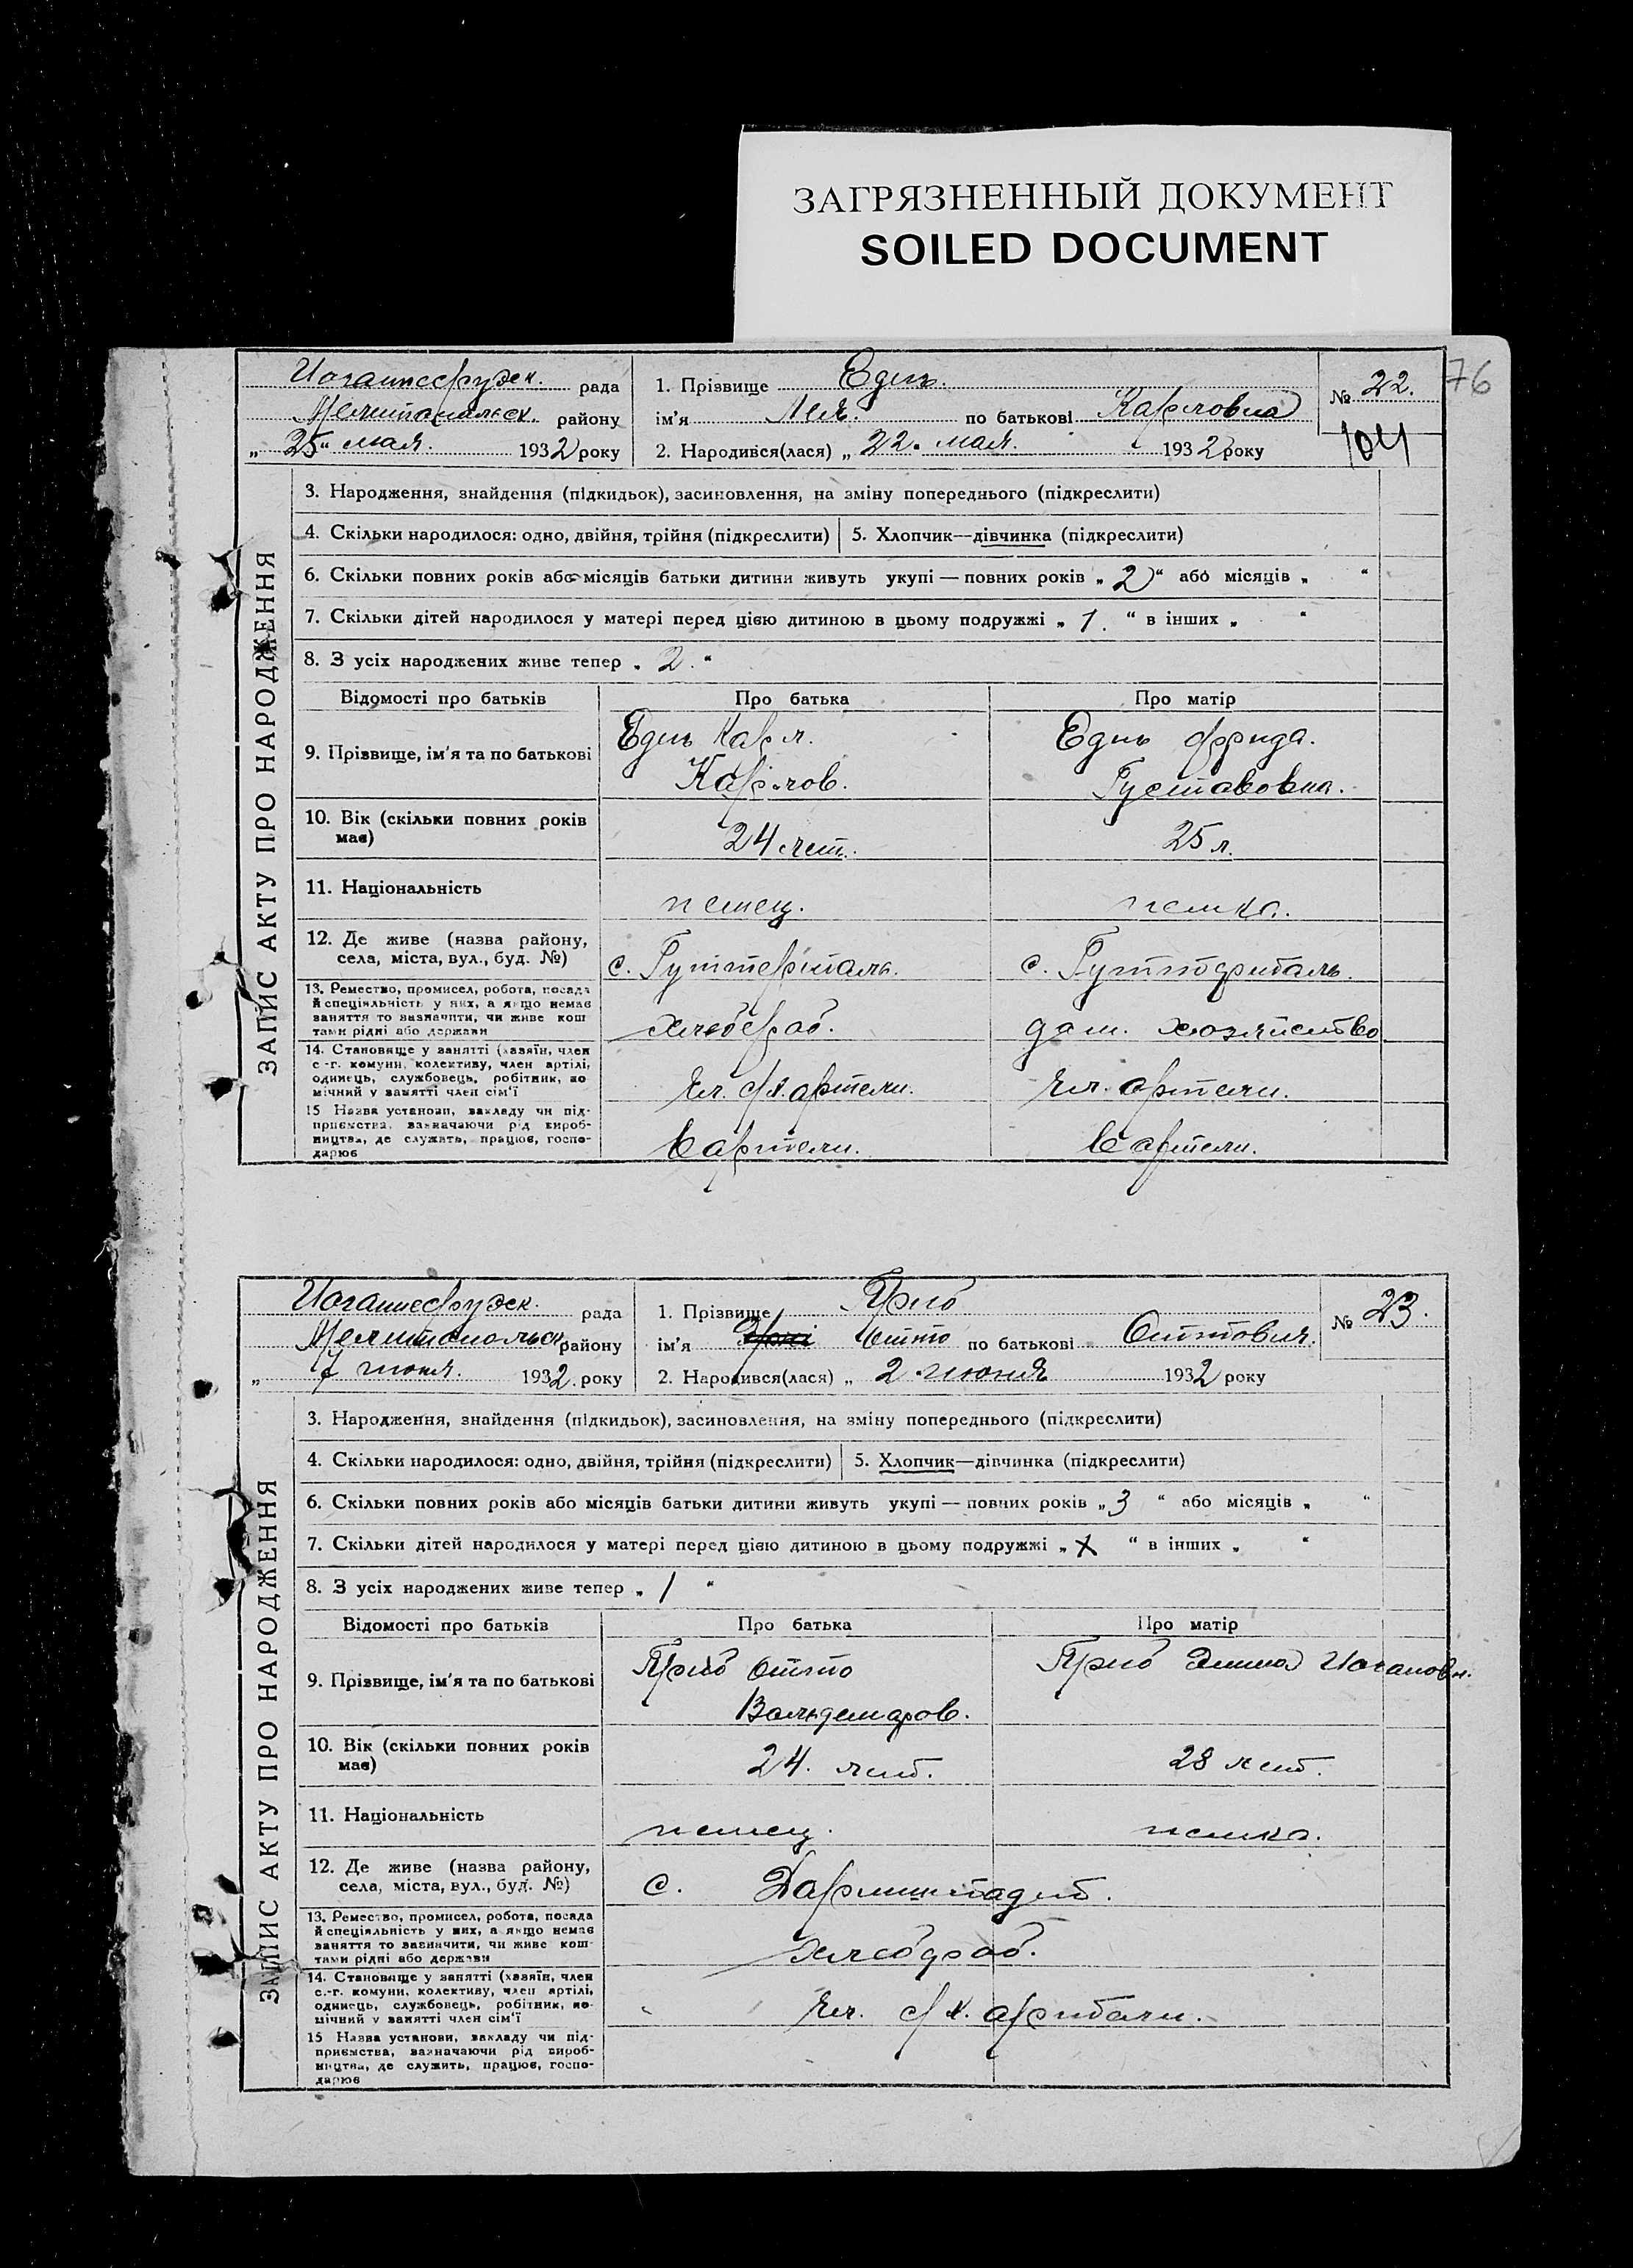 ЗАГРЯЗНЕННЫЙ ДОКУМЕНТ
SOILED DOCUMENT
76
Иоганнесрудск. рада
Мелитопольск. району
„ 25 “ мая. 1932 року
1. Прізвище
ім'я Лея. по батькові Карловна
2. Народився(лася) „ 22. мая. 1932 року
№ 22.
104
ЗАПИС АКТУ ПРО НАРОДЖЕННЯ
3. Народження, знайдення (підкидьок), засиновлення, на зміну попереднього (підкреслити)
4. Скільки народилося: одно, двійня, трійня (підкреслити) 5. Хлопчик—дівчинка (підкреслити)
6. Скільки повних років або місяців батьки дитини живуть укупі — повних років „ 2 “ або місяців „ “
7. Скільки дітей народилося у матері перед цією дитиною в цьому подружжі „ 1. “ в інших „ “
8. З усіх народжених живе тепер „ 2. “
Відомості про батьків Про батька Про матір
9. Прізвище, ім'я та по батькові
Карл. Фрида.
Карлов. Густавовна.
10. Вік (скільки повних років
має)
24 лет. 25 л.
11. Національність
немец. немка.
12. Де живе (назва району,
села, міста, вул., буд. №)
с. Гуттерталь. с. Гуттерталь.
13. Ремество, промисел, робота, посада
й спеціяльність у них, а якщо немає
заняття то зазначити, чи живе кош
тами рідні або держави
хлебороб. дом. хозяйство
14. Становище у занятті (хазяїн, член
с.-г. комуни, колективу, член артілі,
одинець, службовець, робітник, по
мічний у занятті член сім'ї
чл. с/х. артели. чл. артели.
15 Назва установи, закладу чи під-
приємства, зазначаючи рід вироб-
ництва, де служить, працює, госпо-
дарює
в артели. в артели.
Иоганнесрудск. рада
Мелитопольск. району
„ 7 июня. 1932. року
1. Прізвище
ім'я Отто по батькові Оттович.
2. Народився(лася) „ 2 июня 1932 року
№ 23.
ЗАПИС АКТУ ПРО НАРОДЖЕННЯ
3. Народження, знайдення (підкидьок), засиновлення, на зміну попереднього (підкреслити)
4. Скільки народилося: одно, двійня, трійня (підкреслити) 5. Хлопчик—дівчинка (підкреслити)
6. Скільки повних років або місяців батьки дитини живуть укупі — повних років „ 3 “ або місяців „ “
7. Скільки дітей народилося у матері перед цією дитиною в цьому подружжі „ х “ в інших „ “
8. З усіх народжених живе тепер „ 1 “
Відомості про батьків Про батька Про матір
9. Прізвище, ім'я та по батькові
Отто Иогановн.
Вальдемаров.
10. Вік (скільки повних років
має)
24. лет. 28 лет.
11. Національність
немец. немка.
12. Де живе (назва району,
села, міста, вул., буд. №)
с. Дармштадт.
13. Ремество, промисел, робота, посада
й спеціяльність у них, а якщо немає
заняття то зазначити, чи живе кош-
тами рідні або держави
хлебороб.
14. Становище у занятті (хазяїн, член
с.-г. комуни, колективу, член артілі,
одинець, службовець, робітник, по-
мічний у занятті член сім'ї
чл. с/х. артели.
15 Назва установи, закладу чи під-
приємства, зазначаючи рід вироб-
ництва, де служить, працює, госпо-
дарює